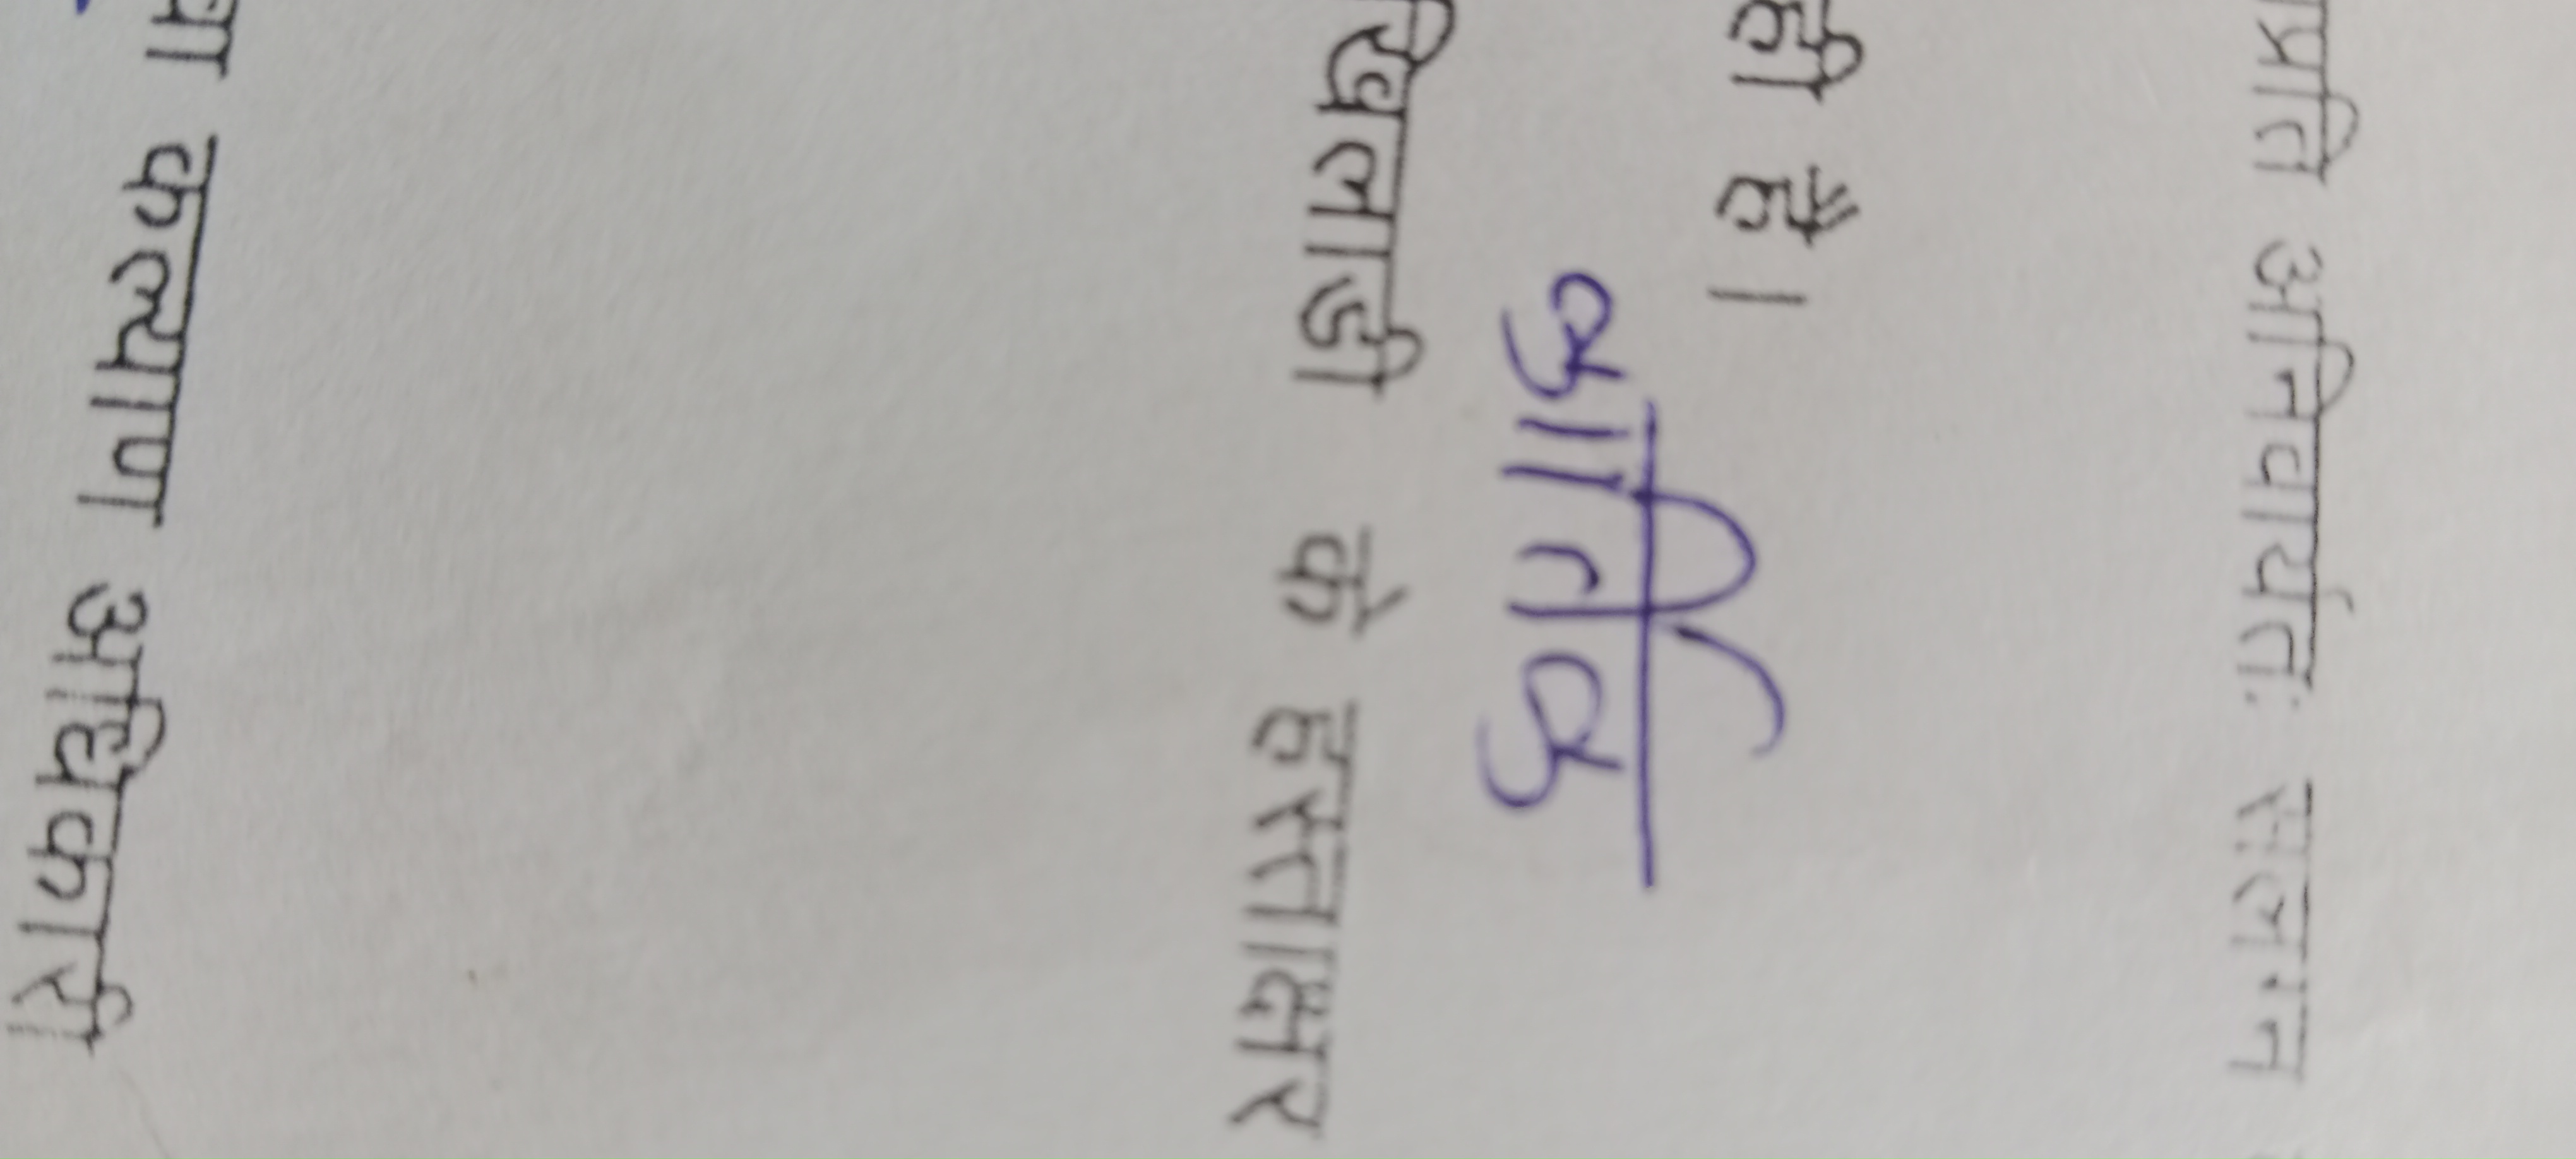 प्रति अनिवार्यतः सलग्न
ही है।
कार्तिक
खिलाडी के हस्ताक्षर
कल्याण अधिकारी